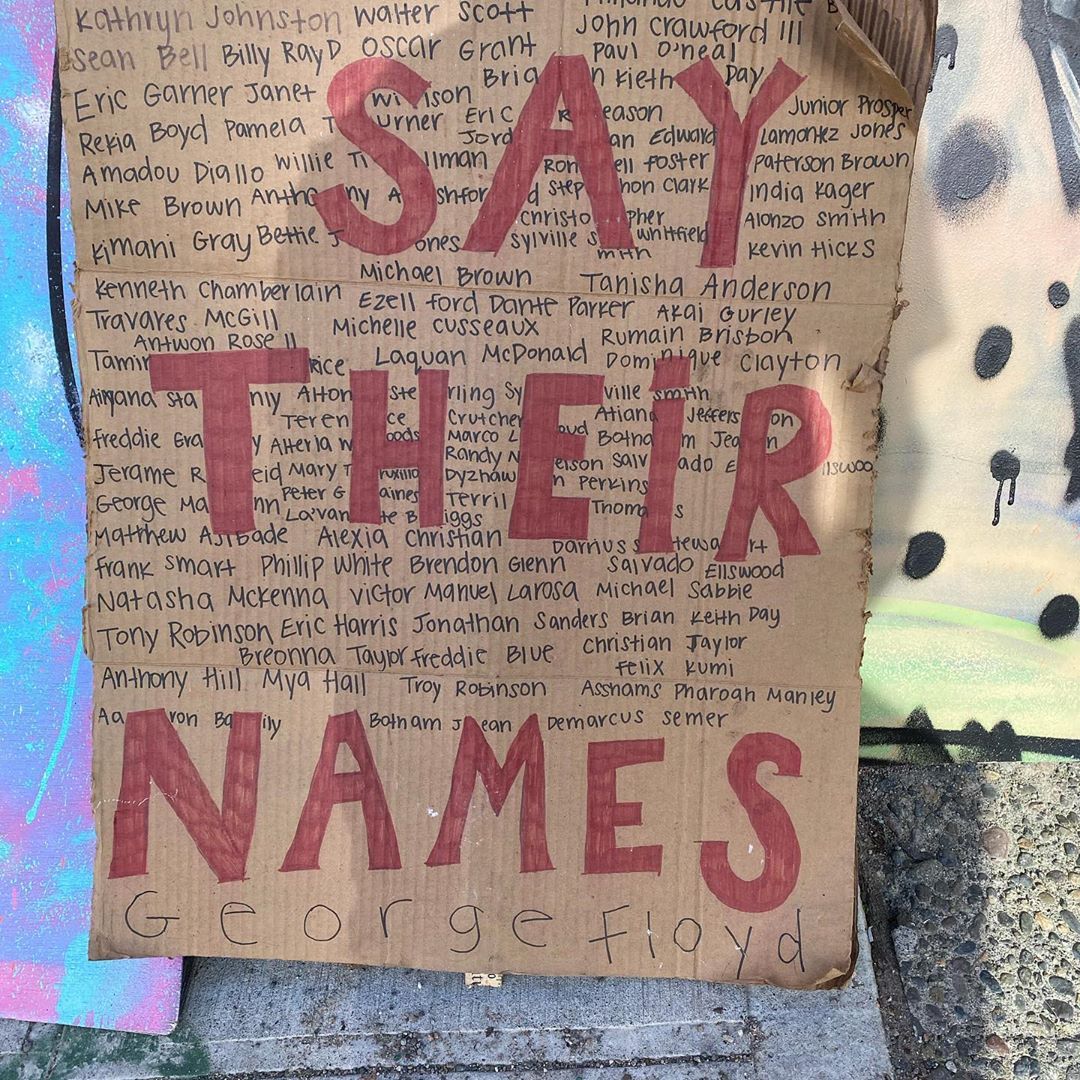 Kathryn Johnston Walter Scott
John Crawford III
Sean Bell Billy Ray D Oscar Grant Paul O'neal
Eric Garner Janet Wilson Kieth Day
Junior Prosper
Rekia Boyd Pamela Turner Eric Reason
Jordan Edward Lamontez Jones
Amadou Diallo Willie Tillman Ronell Foster Paterson Brown
Mike Brown Anthony Ashford Stephon Clark India Kager
Christopher Whitfield Alonzo Smith
Kimani Gray Bettie Jones Sylville Smith Kevin Hicks
SAY
Michael Brown Tanisha Anderson
Kenneth Chamberlain Ezell Ford Dante Parker Akai Gurley
Travares McGill Michelle Cusseaux Rumain Brisbon
Antwon Rose II
Tamir Rice Laquan McDonald Dominique Clayton
Aiyana Stanly Alton Sterling Syville Smith
Terence Crutcher Atiana Jefferson
Freddie Gray Alteria Woods Marco Loud Botham Jean
Randy Nelson Salvado Ellswood
Jerame Reid Mary Truxillo Dyzhawn Perkins
George Mann Peter Gaines Terril Thomas
La'vante Biggs
THEiR
Matthew Ajibade Alexia Christian Darrius Stewart
Frank Smart Phillip White Brendon Glenn Salvado Ellswood
Natasha McKenna Victor Manuel Larosa Michael Sabbie
Tony Robinson Eric Harris Jonathan Sanders Brian Keith Day
Breonna Taylor Freddie Blue Christian Taylor
Felix Kumi
Anthony Hill Mya Hall Troy Robinson Asshams Pharoah Manley
Aaron Baily Botham Jean Demarcus Semer
NAMES
George Floyd